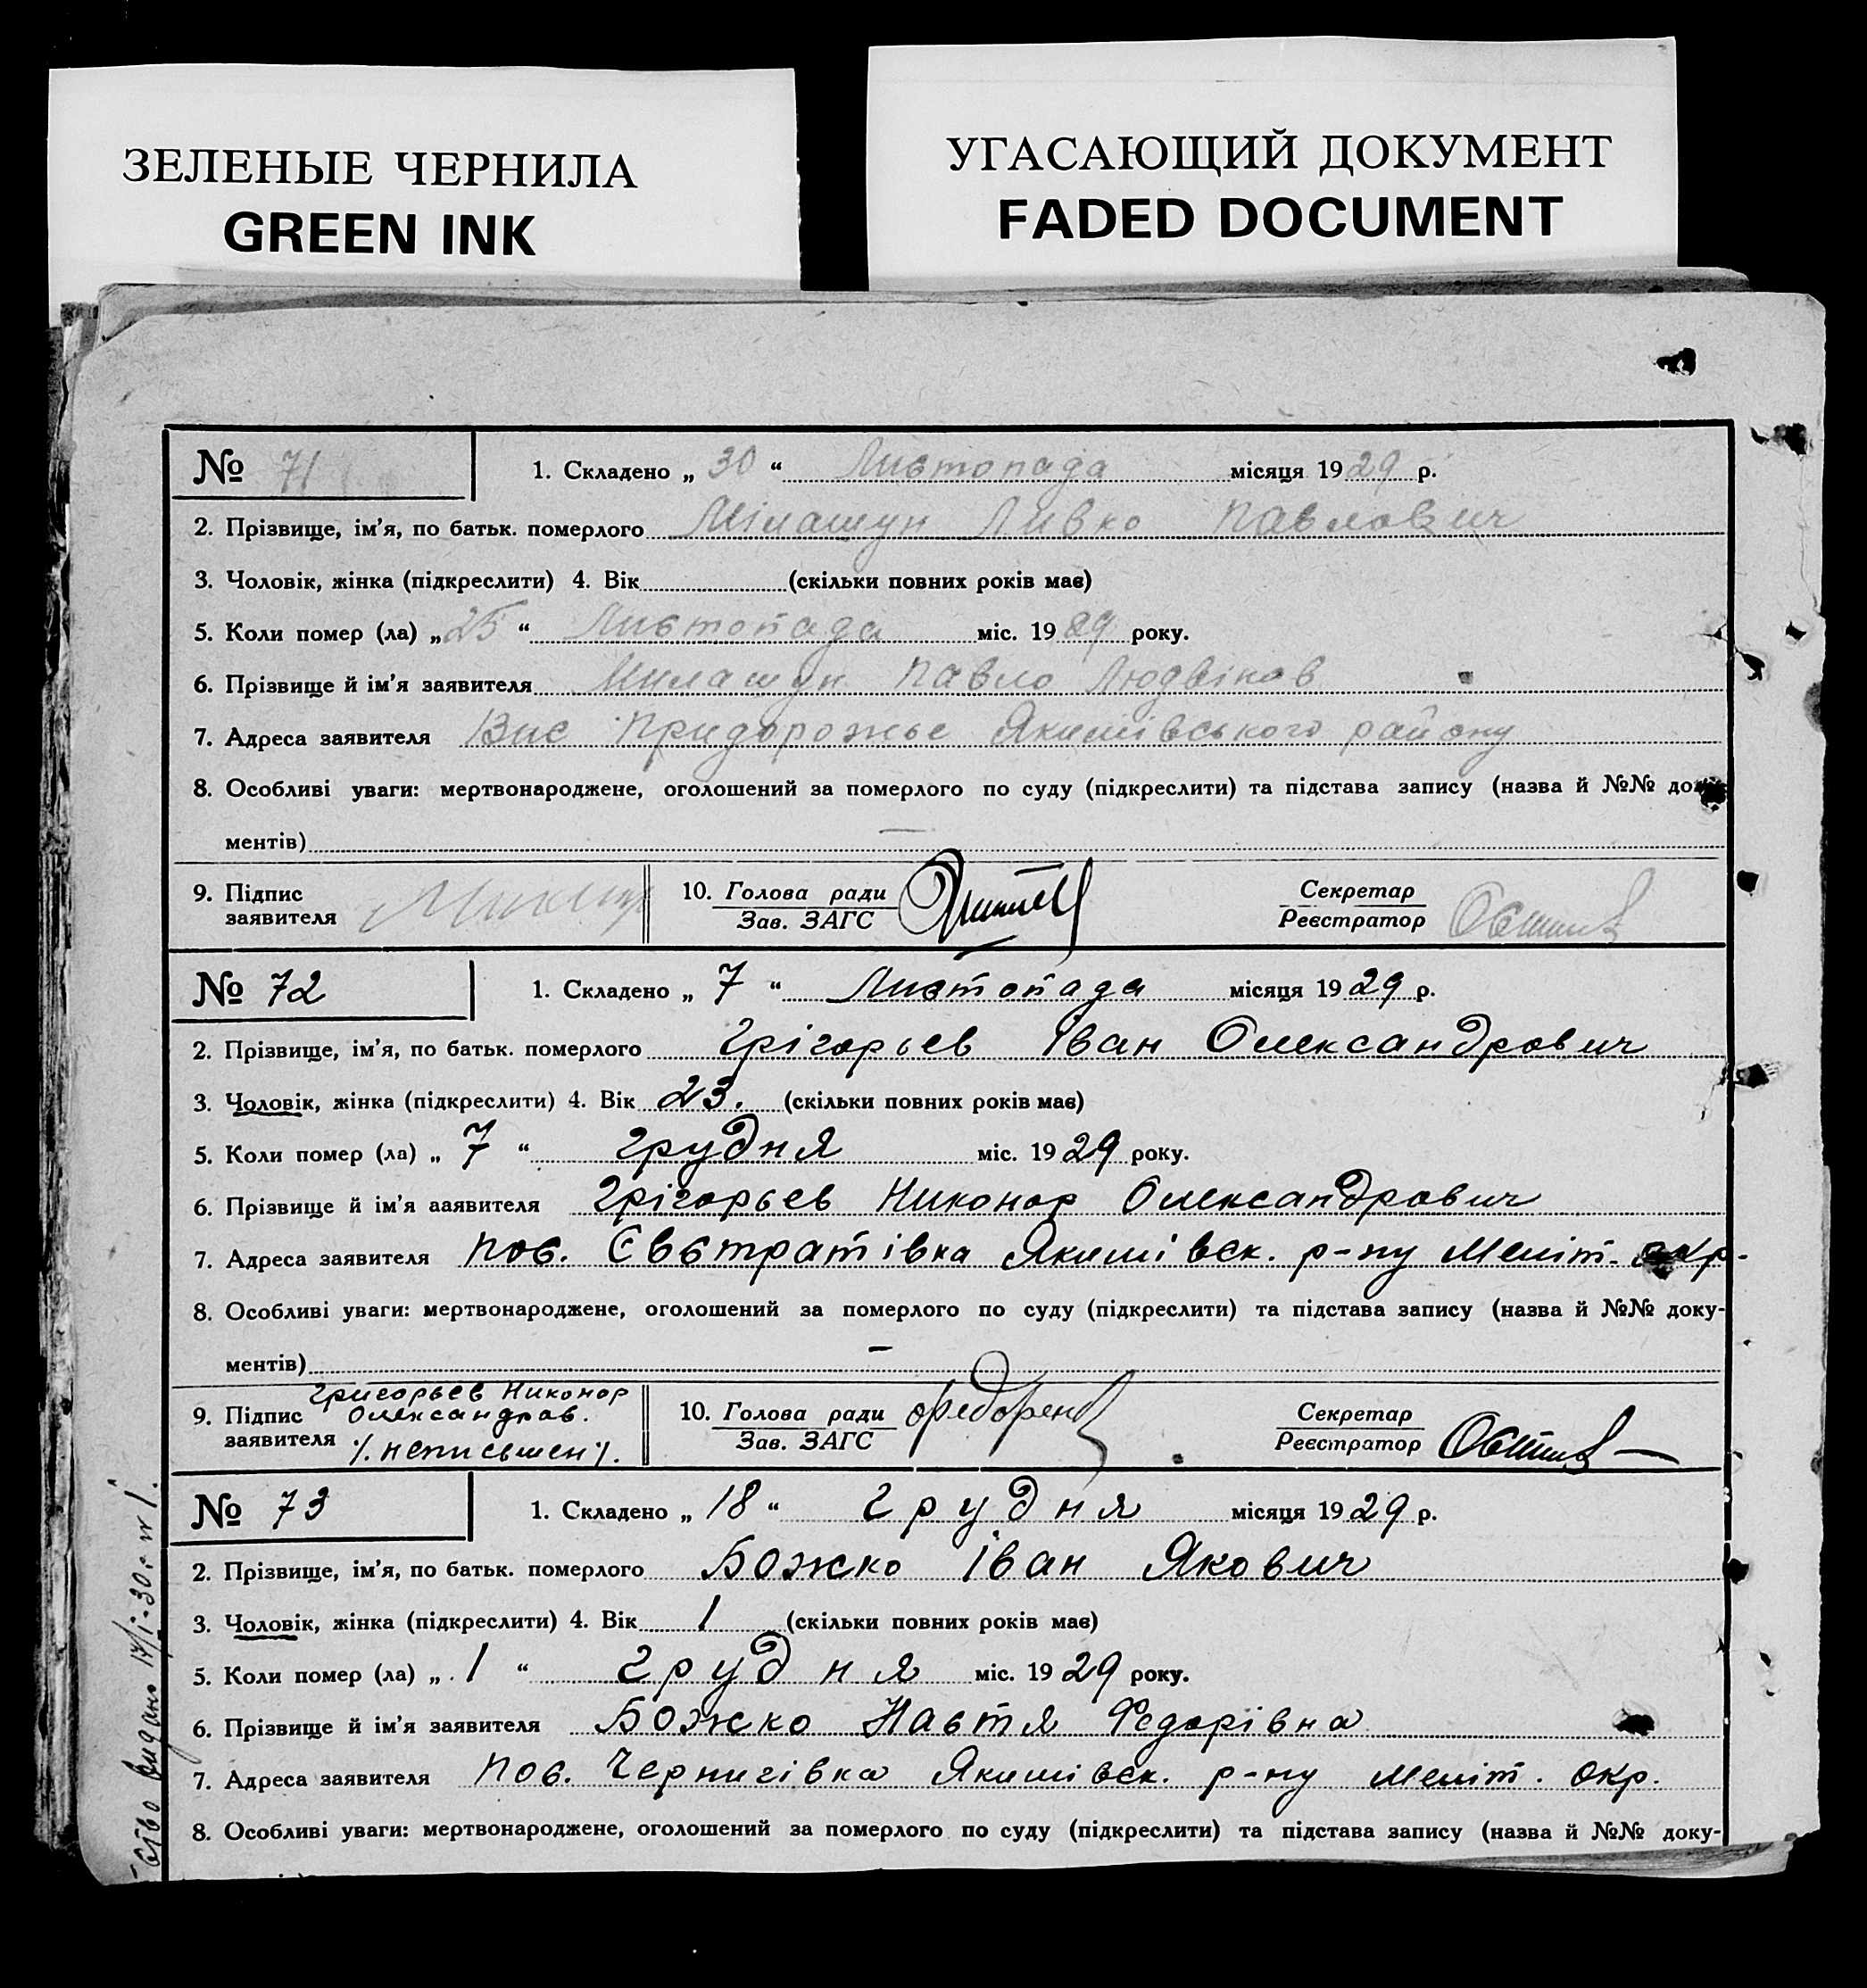 ЗЕЛЕНЫЕ ЧЕРНИЛА
GREEN INK
УГАСАЮЩИЙ ДОКУМЕНТ
FADED DOCUMENT
№ 71 1. Складено „ 30 “ Листопада місяця 1929 р.
2. Прізвище, ім’я, по батьк. померлого Мілашун Ливко Павлович
3. Чоловік, жінка (підкреслити) 4. Вік (скільки повних років має)
5. Коли помер (ла) „ 25 “ Листопада міс. 1929 року.
6. Прізвище й ім’я заявителя Милашун Павло Людвіков
7. Адреса заявителя Вис Придорожьє Якимівського району
8. Особливі уваги: мертвонароджене, оголошений за померлого по суду (підкреслити) та підстава запису (назва й №№ до
ментів) —
9. Підпис заявителя 10. Голова ради Зав. ЗАГС Секретар Реєстратор
№ 72 1. Складено „ 7 “ Листопада місяця 1929 р.
2. Прізвище, ім’я, по батьк. померлого Грігорьев Іван Олександрович
3. Чоловік, жінка (підкреслити) 4. Вік 23. (скільки повних років має)
5. Коли помер (ла) „ 7 “ грудня міс. 1929 року.
6. Прізвище й ім’я ааявителя Грігорьев Никонор Олександрович
7. Адреса заявителя Пос. Євстратівка Якимівськ. р-ну Меліт. окр.
8. Особливі уваги: мертвонароджене, оголошений за померлого по суду (підкреслити) та підстава запису (назва й №№ доку-
ментів) —
9. Підпис заявителя Григорьев Никонор Олександров. /. неписьмен /. 10. Голова ради Зав. ЗАГС Секретар Реєстратор
№ 73 1. Складено „ 18 “ грудня місяця 1929 р.
2. Прізвище, ім’я, по батьк. померлого Божко Іван Якович
3. Чоловік, жінка (підкреслити) 4. Вік 1 (скільки повних років має)
5. Коли помер (ла) „ 1 “ грудня міс. 1929 року.
6. Прізвище й ім’я заявителя Божко Настя Федорівна
7. Адреса заявителя Пос. Чернигівка Якимівск. р-ну Меліт. окр.
8. Особливі уваги: мертвонароджене, оголошений за померлого по суду (підкреслити) та підстава запису (назва й №№ доку-
ство видано 17/I-30